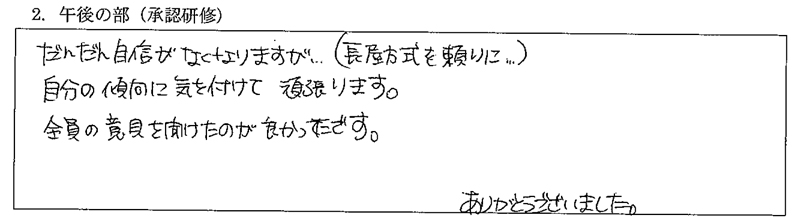 2. 午後の部（承認研修）
だんだん自信がなくなりますが…（長屋方式を頼りに…）
自分の傾向に気を付けて 頑張ります。
全員の意見を聞けたのが良かったです。
ありがとうございました。